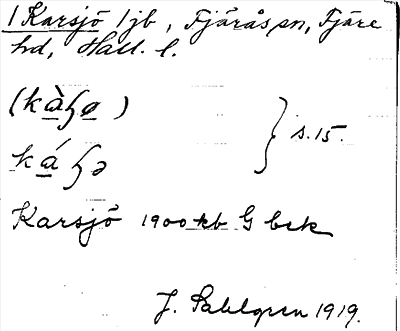 1 Karsjö 1 jb, Fjärås sn, Fjäre
hd, Hall. l.
(kàɧø)
s. 15.
káɧə
Karsjö 1900 kb G bek
J. Sahlgren 1919.